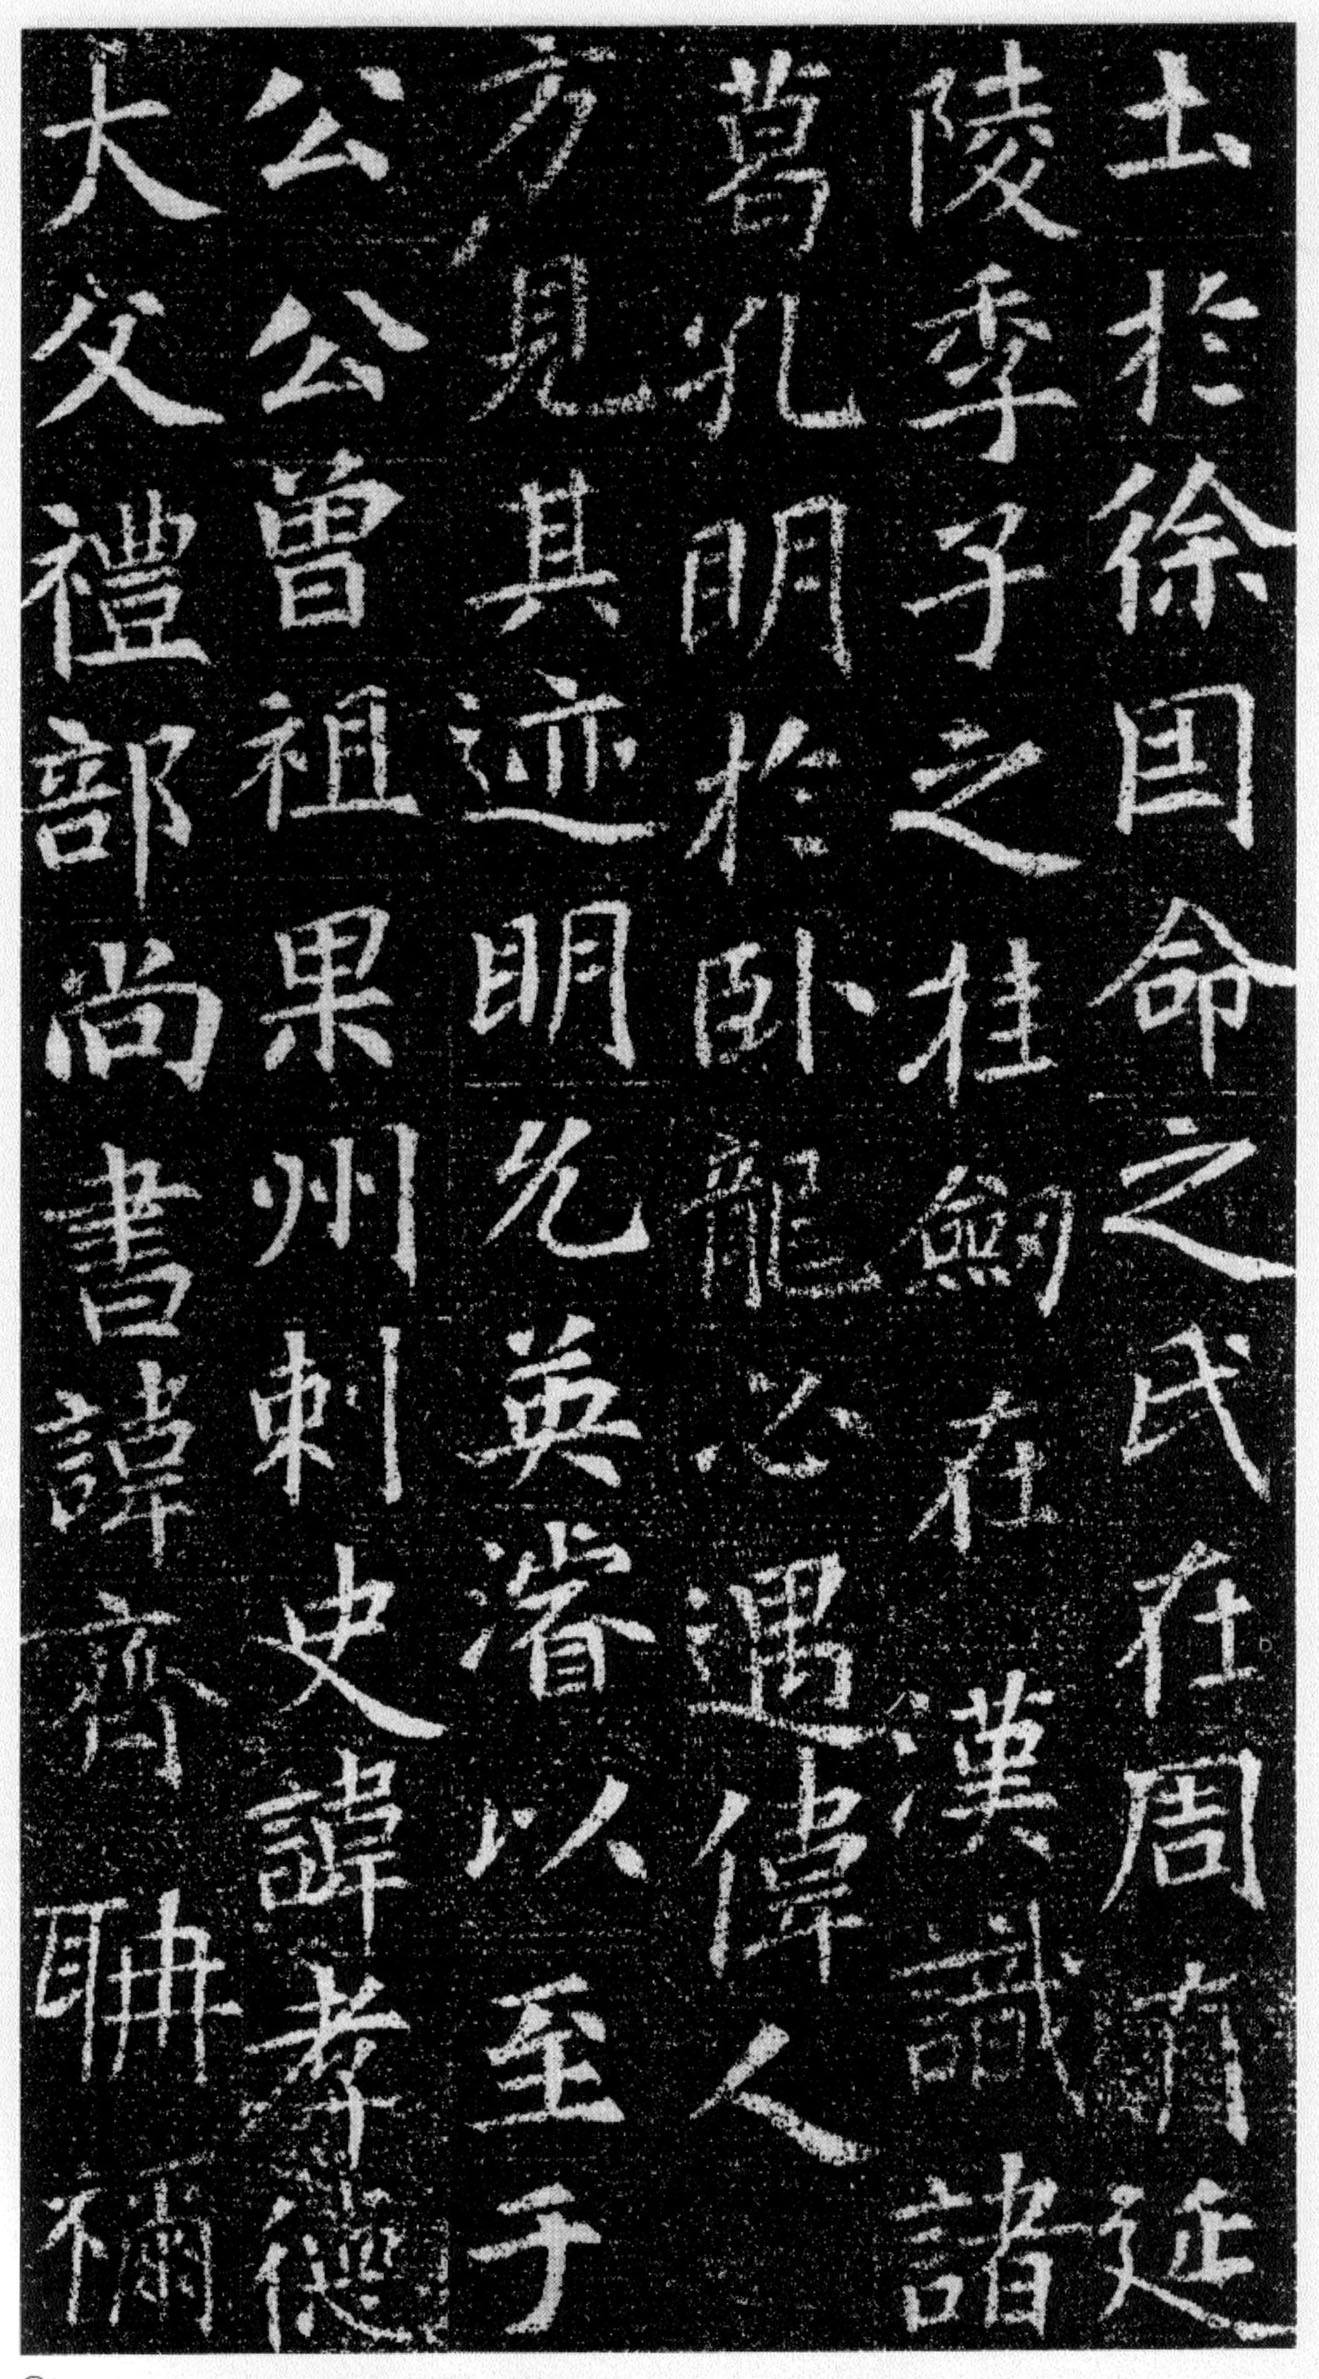 土於徐国命之氏在周有延
陵季子之挂劒在漢識諸
葛孔明於卧龍必遇偉人
方見其迹明允英濬以至于
公公曾祖果州刺史諱孝德
大父禮部尚書諱齊聃禰